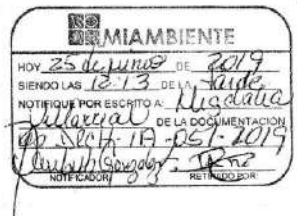 MIAMBIENTE
HOY 25 de junio DE 2019
SIENDO LAS 12:13 DE LA tarde
NOTIFIQUE POR ESCRITO A: Migdalia
Villarreal DE LA DOCUMENTACION
DECH-IA-051-2019
NOTIFICADOR RETIRADO POR